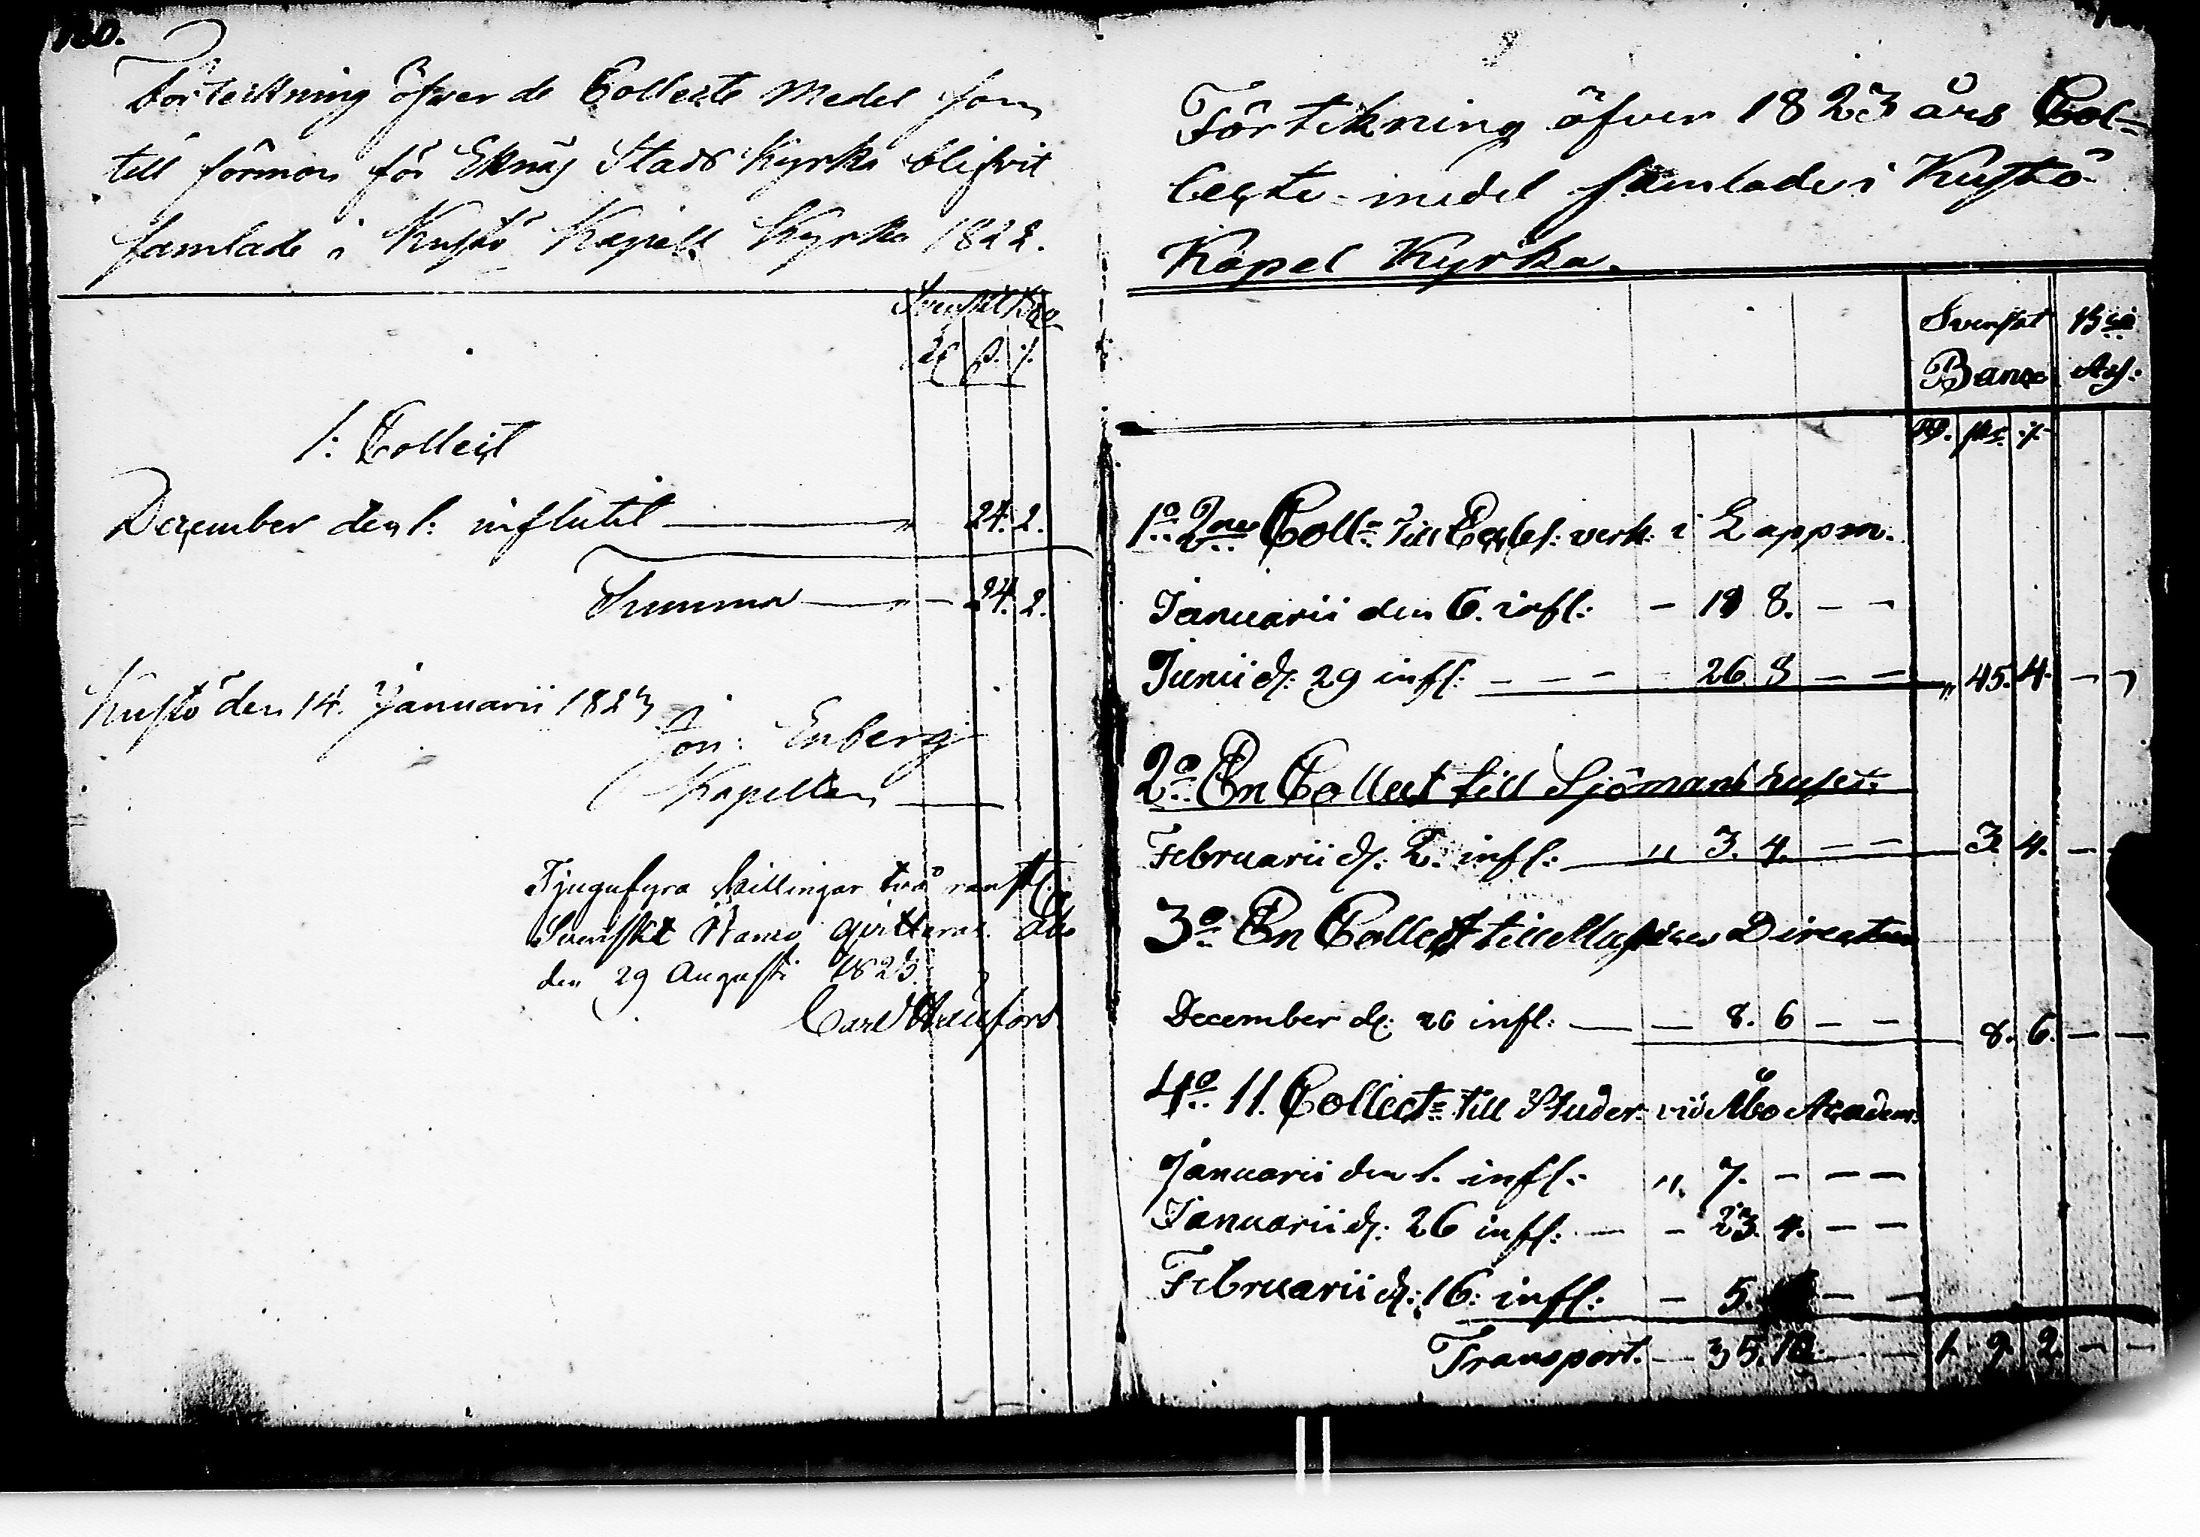 180.
Förteckning öfver de Collecte Medel som
till förmon för Eknäs Stads Kyrka blifvit
samlade i Kustö Kapell Kyrka 1822.
Svenskt Bco
Rd ß. rf.
1: Collect
December den 1: influtit — " 24. 2.
Summa — " — 24. 2.
Kustö den 14. Januarii 1823
Jon: Enberg
Kapellan
Tjugufyra skillingar två runst:
Svenskt Banco qvitteras. Åbo
den 29 Augusti 1823.
Carl
Förtekning öfver 1823 års Col-
lecte-medel samlade i Kustö
Kapel Kyrka.
Svenskt Bco
Banco Ass:
Rd. sk. rf.
1o 2ne Coll: till Eccles: verk: i Lappm.
Januarii den 6. infl: — 18 8. — —
Junii d: 29 infl: — — — — 26. 8 — — " 45. 4. — —
2o En Collect till Sjömanshuset:
Februarii d: 2. infl: — " 3. 4. — — 3. 4. —
3o En Collect till Directeur
December d: 26 infl: — — 8. 6 — — 8. 6. — —
4o 11. Collect: till Studer: vid Åbo Academ:
Januarii den 1. infl: " 7. — — —
Januarii d: 26 infl: — — 23. 4. — —
Februarii d: 16: infl: — 5. — —
Transport. — 35. 10 — — 1. 9. 2. — —